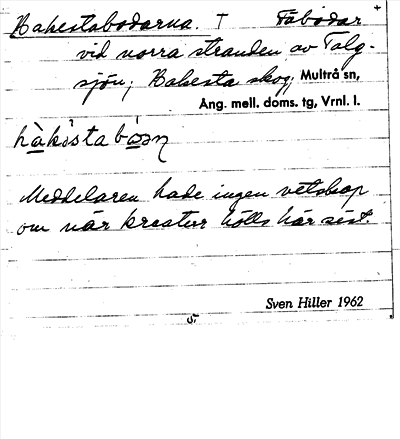 Hakestabodarna. T Fäbodar +
vid norra stranden av Talg-
sjön; Hakesta skog, Multrå sn,
Ång. mell. doms. tg, Vrnl. l.
Meddelaren hade ingen vetskap
om när kreatur hölls här sist.
Sven Hiller 1962